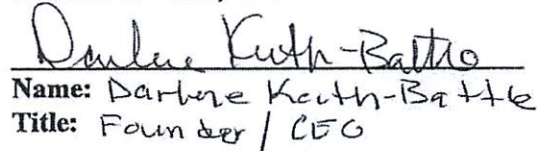 Darlene Keith-Battle
Name: Darlene Keith-Battle
Title: Founder / CEO